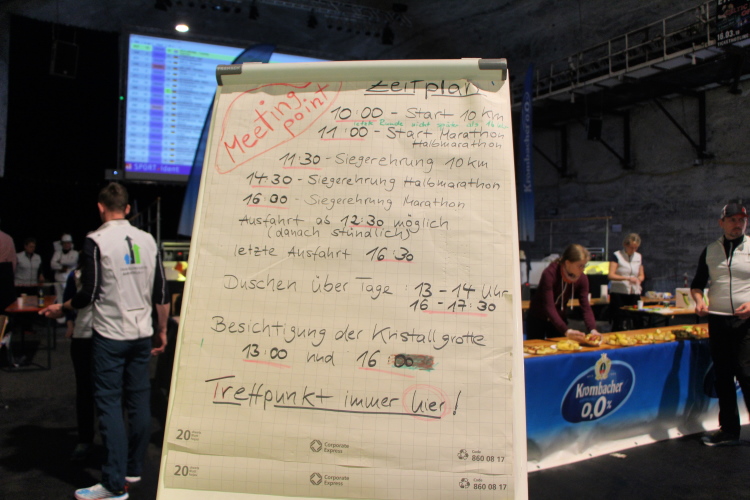 Zeitplan:
Meeting
point
10:00 - Start 10 km
11:00 - Start Marathon
Halbmarathon
11:30 - Siegerehrung 10 km
14:30 - Siegerehrung Halbmarathon
16:30 - Siegerehrung Marathon
Ausfahrt ab 12:30 möglich
(danach stündlich)
letzte Ausfahrt 16:30
Duschen über Tage : 13 - 14 Uhr
16 - 17:30
Besichtigung der Kristallgrotte
13:00 und 16
Treffpunkt immer hier!
20
Corporate
Express
860 08 17
20
Corporate
Express
860 08 17
Krombacher
0,0%
Krombacher 0,0